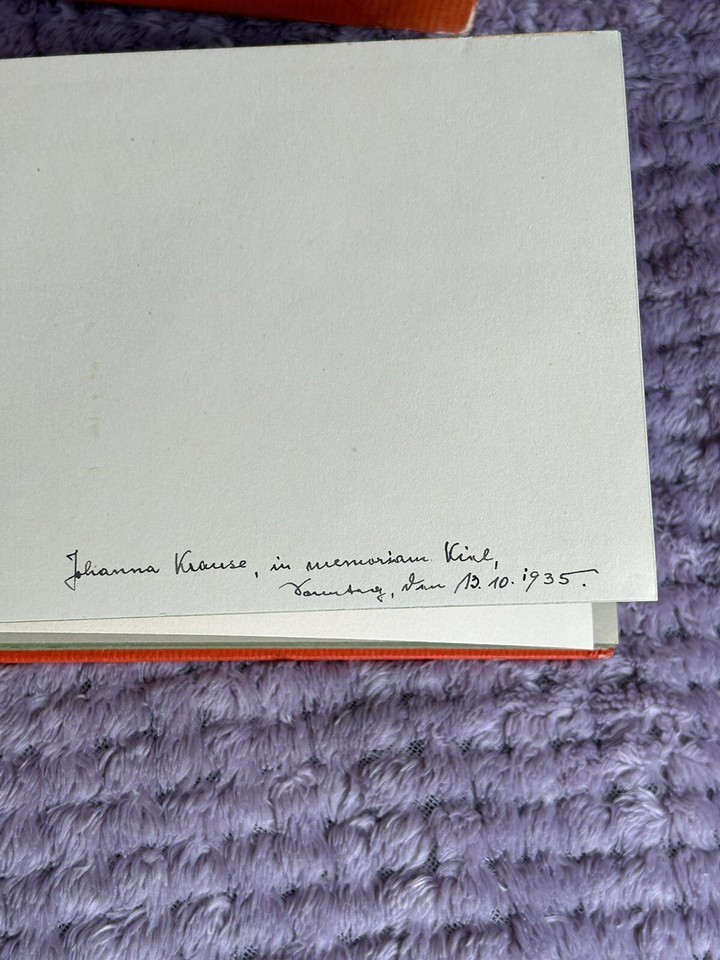 Johanna Krause, in memoriam Kiel,
den 13. 10. 1935.